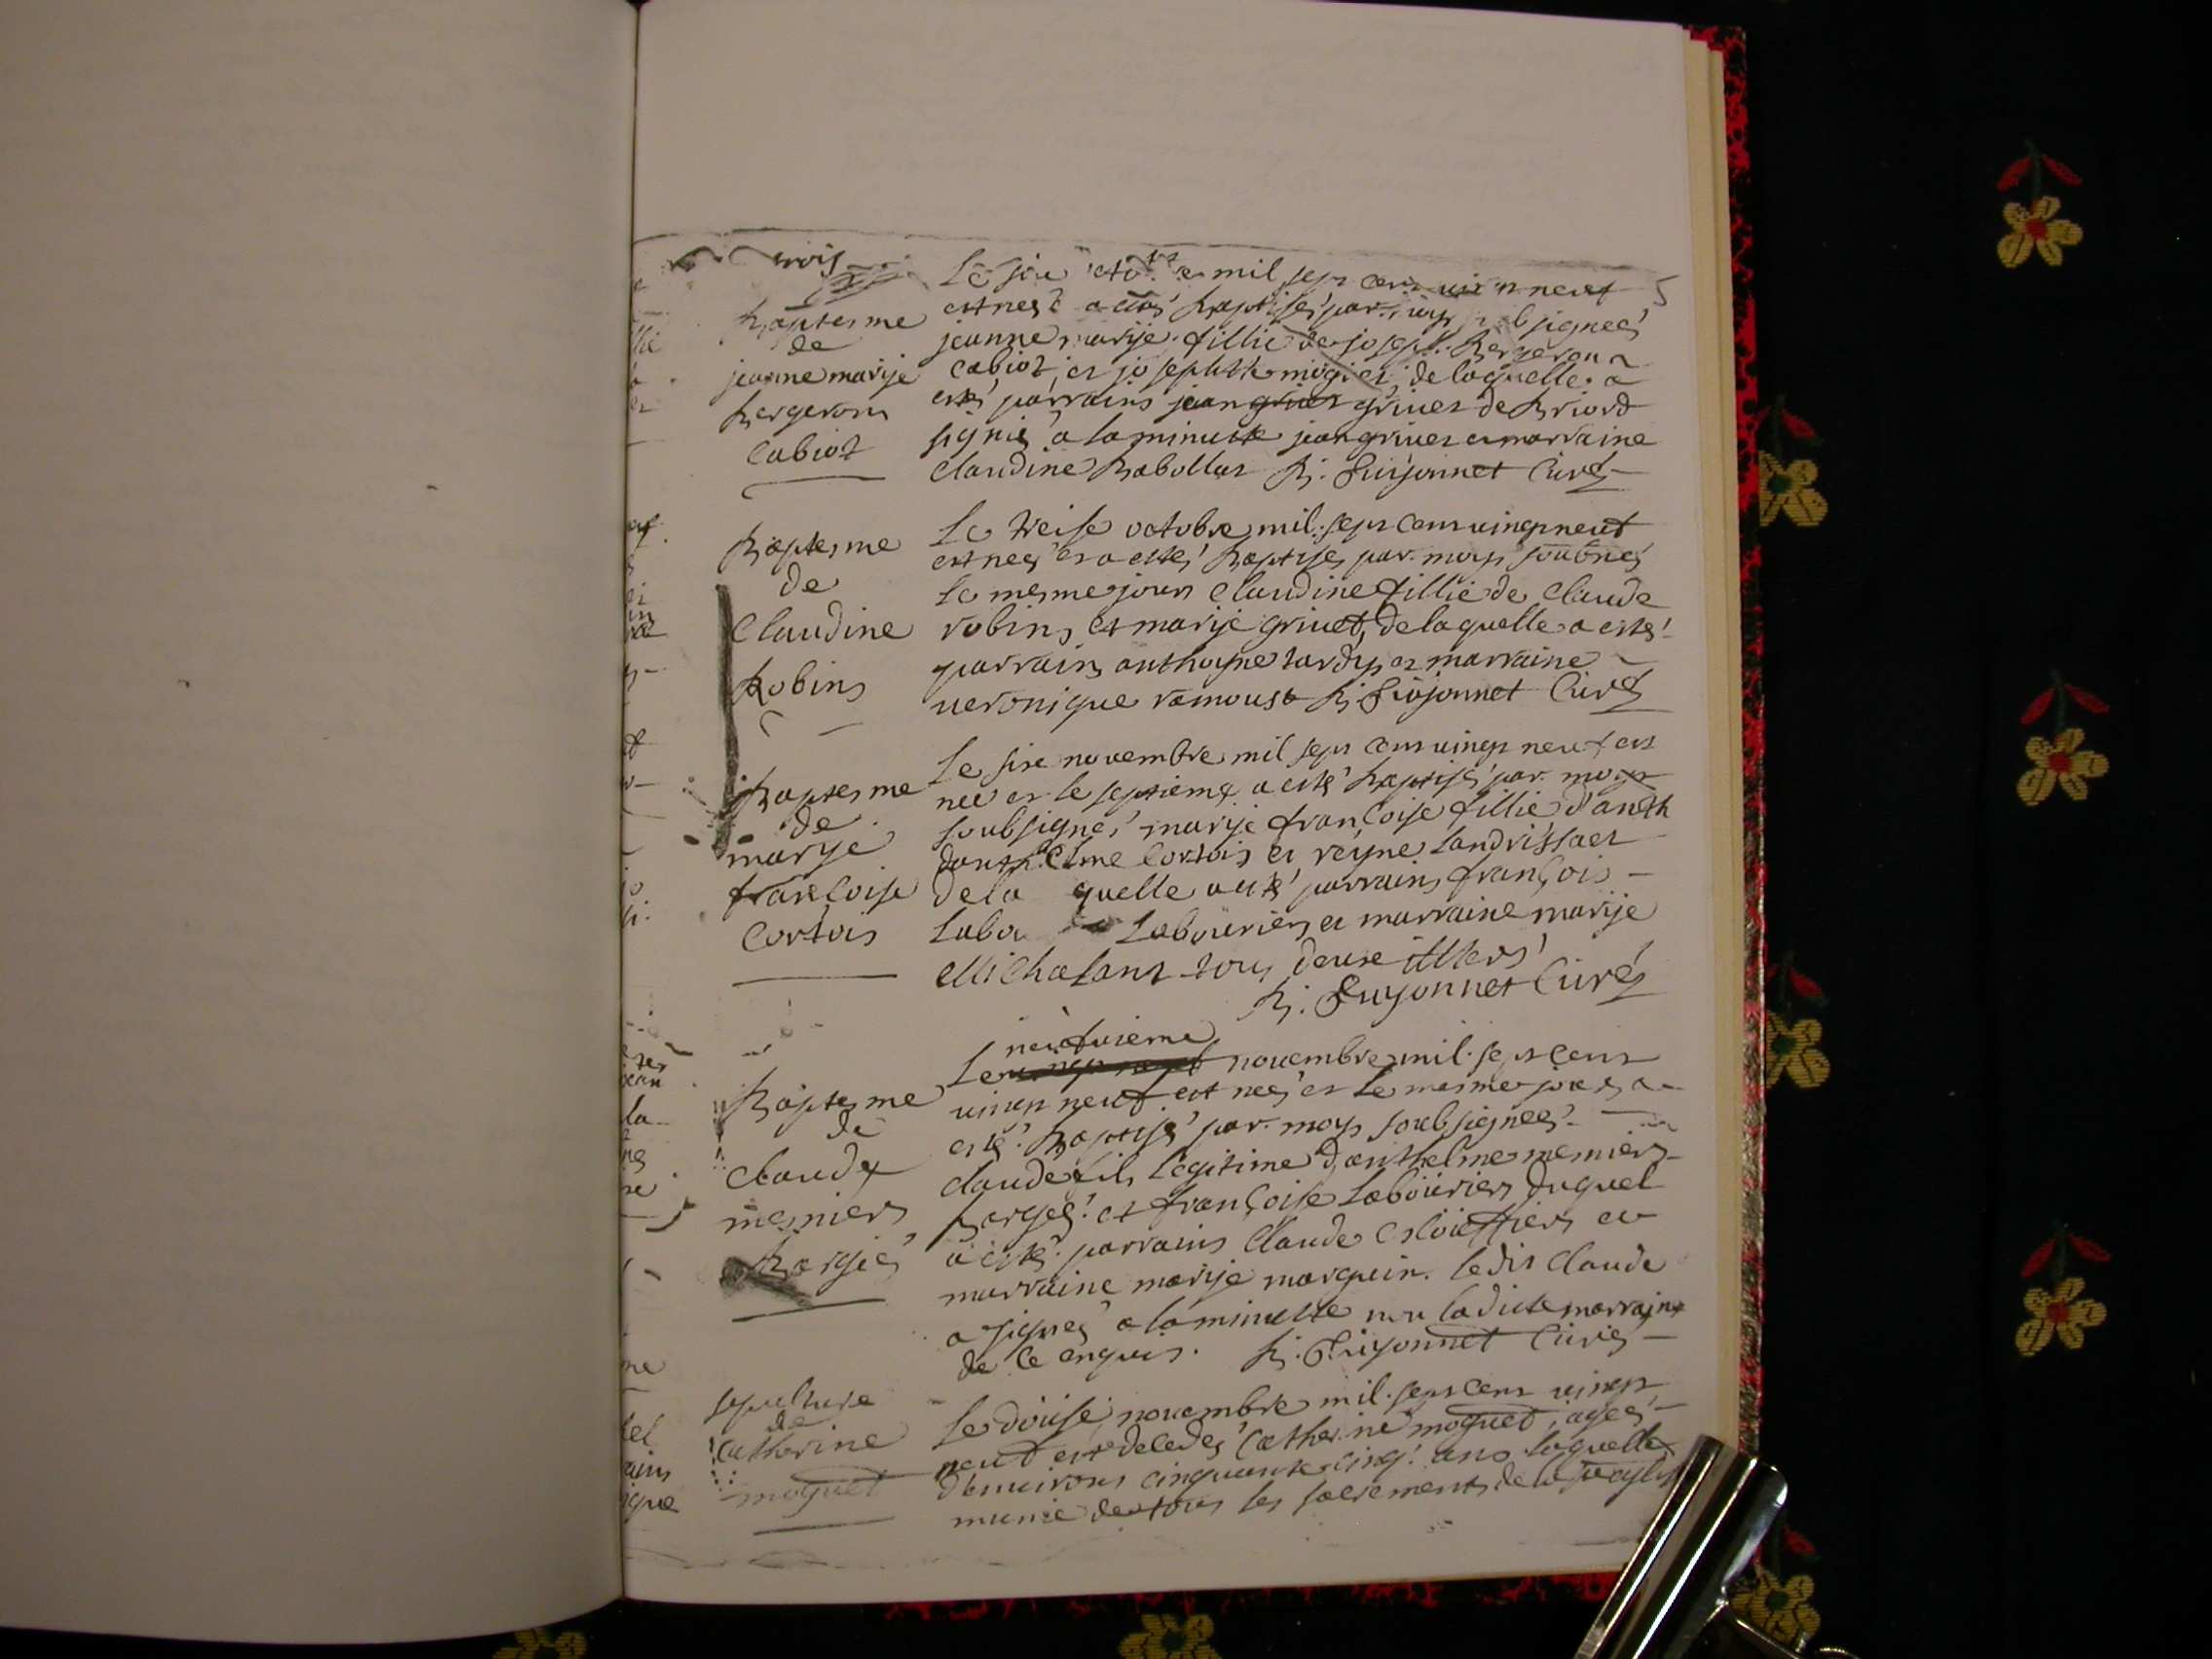 trois
Baptesme
de
jeanne marije
bergeron
Cabiot
Le mil sept cens neuf
est neé baptiseé par signeé
jeanne marije fillie de joseph bergeron
Cabiot, et josephte de laquelle a
esté parrains jean griuet griuet de briord
signé a la minutte jean griuet et marraine
Claudine Rabollat B. Guyonnet Curé
Baptesme
de
Claudine
Robins
Le treise octobre mil sept cens uingt neuf
est neé et a esté baptiseé par moy soubné
Le mesme jours Claudine fillie de Claude
robins et marije griuet, de laquelle a esté
parrains anthoyne tardy et marraine
ueronique ramoust B. Guyonnet Curé
Baptesme
de
marije
francoise
Cortois
Le sixe nouembre mil sept cens uingt neuf est
neé et le septieme a esté baptisé par moy
soubsigné marije françoise fillie d'anth
danthelme Cortois et reyne Landrissaet
de la quelle a esté parrains françois
Labou Labouriers et marraine marije
Michaland tous deux illers
B. Guyonnet Curé
Baptesme
de
Claude
mesniers
Bargié
neufuieme
Le nouembre mil sept cens
uingt neuf est neé et le mesme jours a
esté baptisé par moy soubsigneé
claude fils legitime d'anthelme mesniers
bargeé et françoise Labouriers duquel
a esté parrains Claude et
marraine marije marquein. ledit Claude
a signeé a la minutte non la dicte marraine
de ce enquis. B. Guyonnet Curé
sepulture
de
Catherine
moguet
Le douise nouembre mil sept cens uingt
neuf est decedeé Catherine moguet, ageé
d'enuirons cinquante cinq ans laquelle
munie de tous les sacrements de